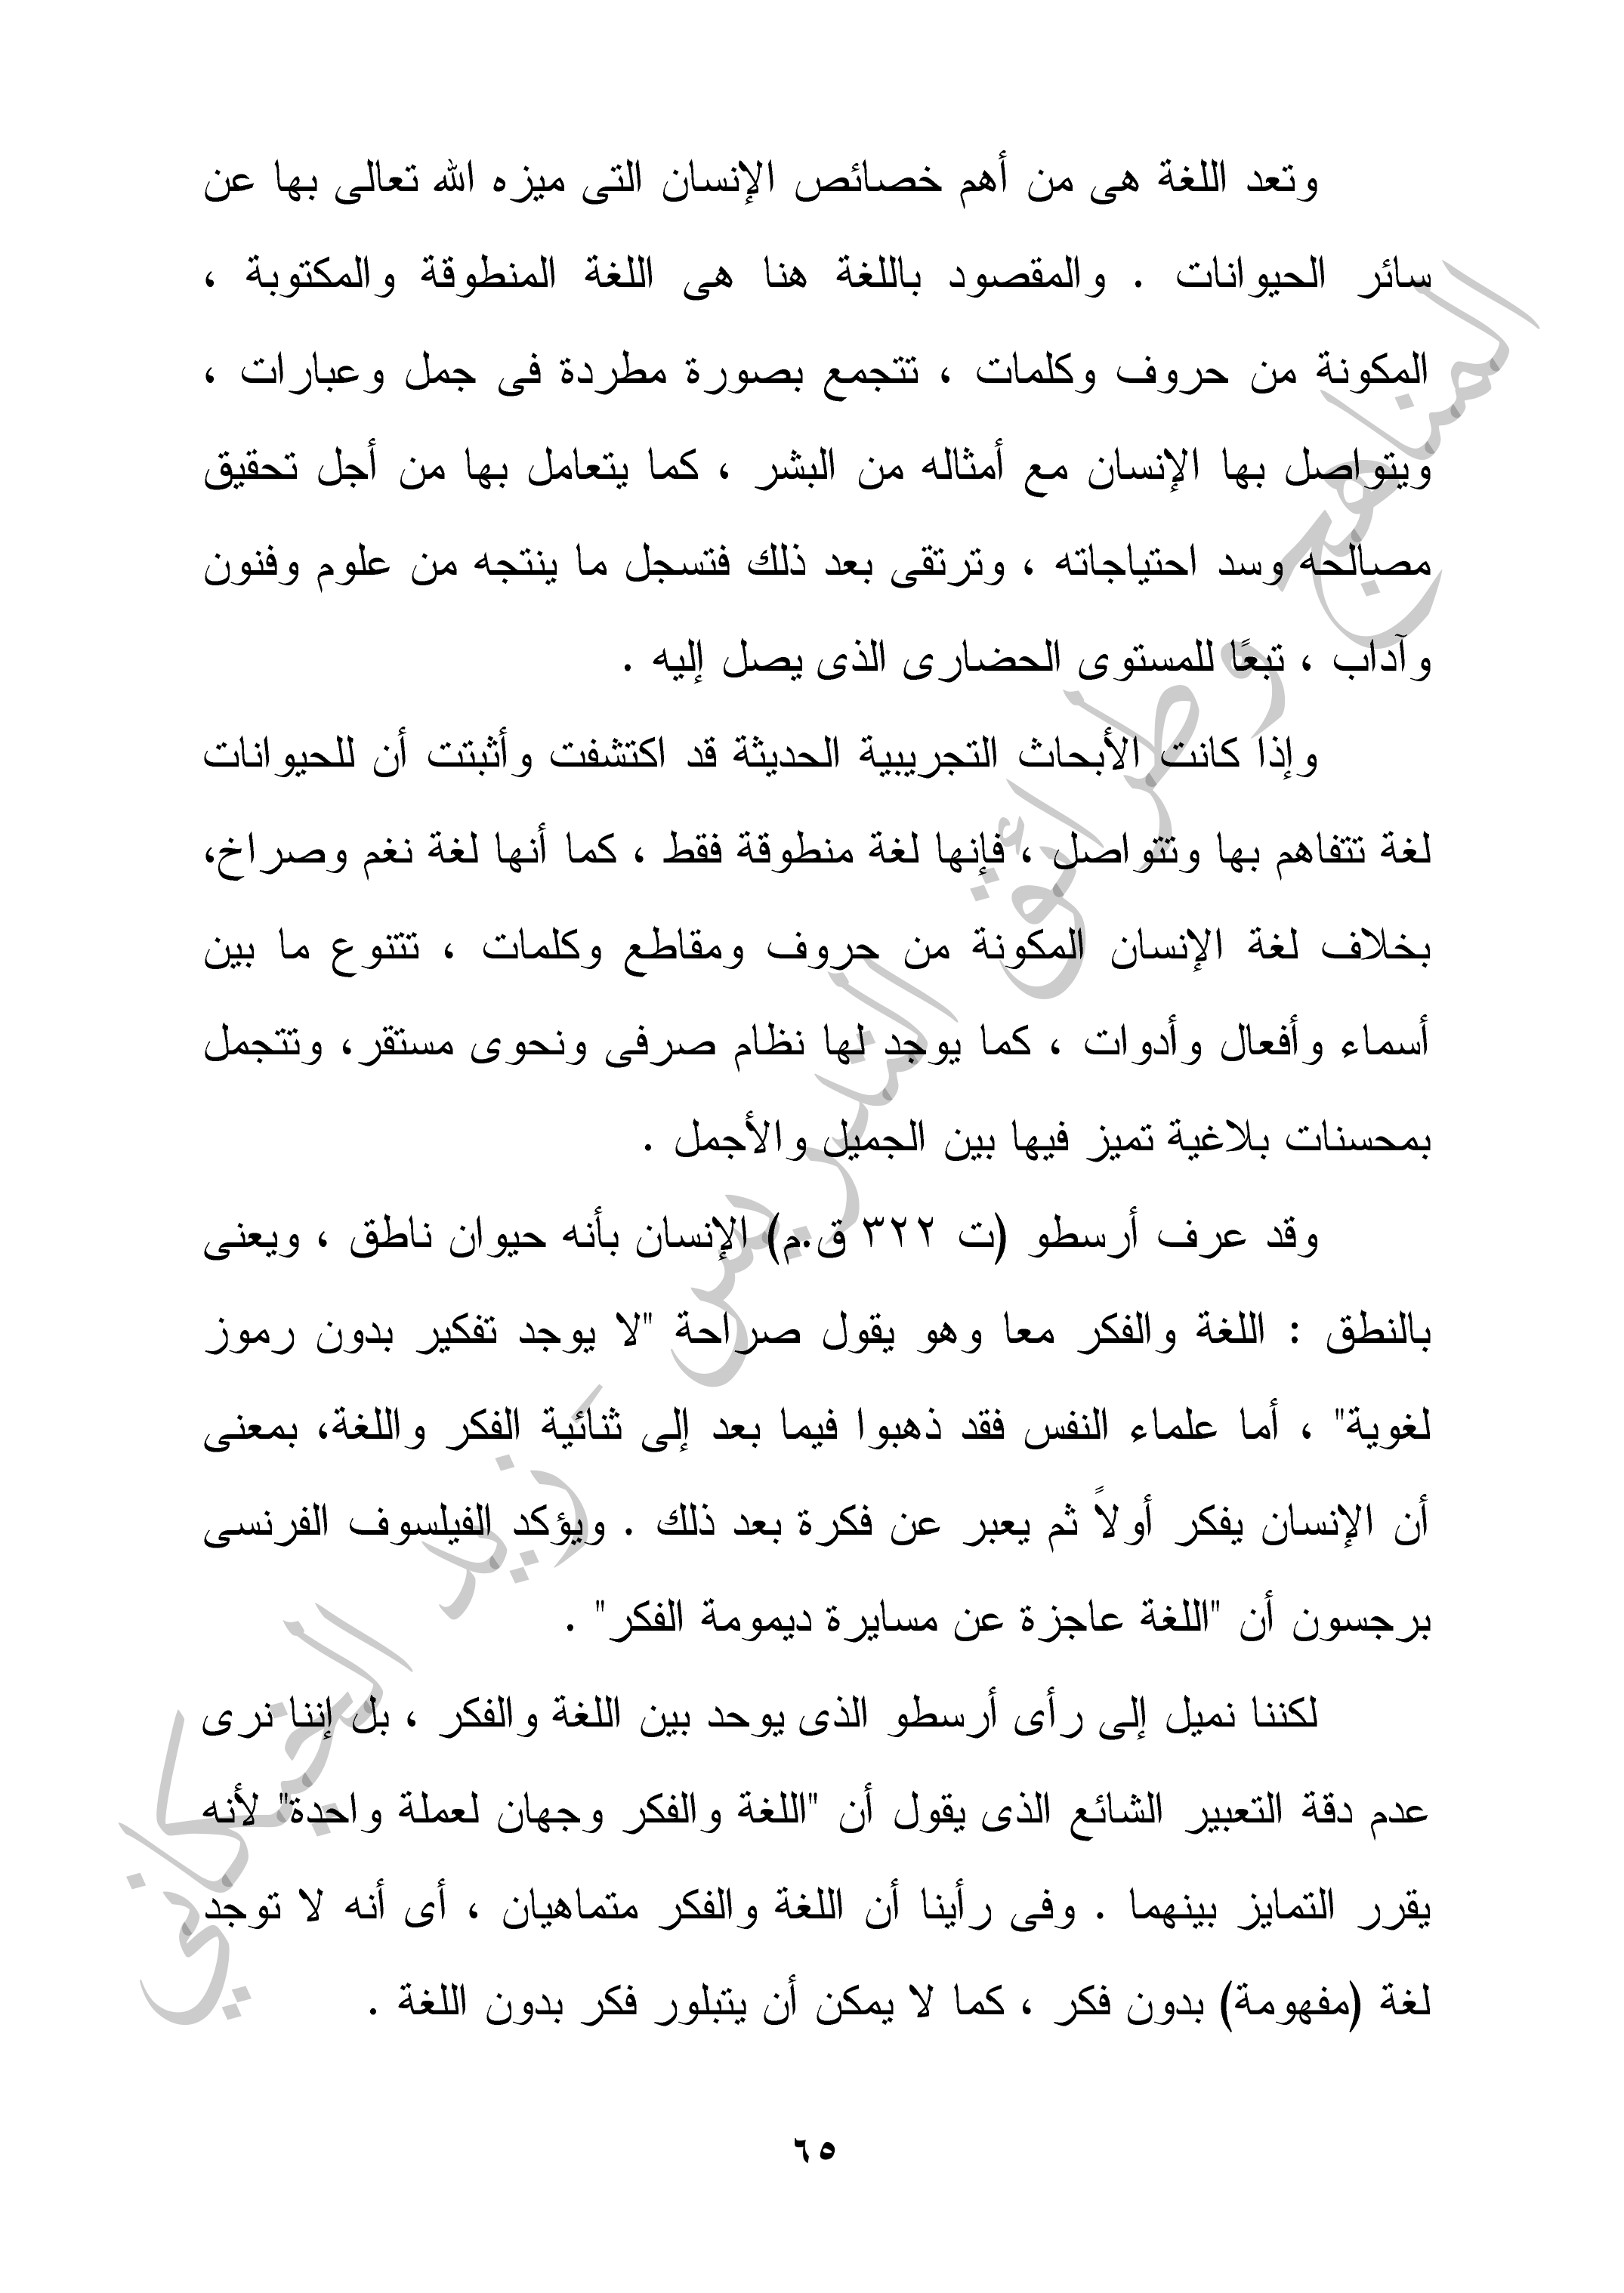 وتعد اللغة هى من أهم خصائص الإنسان التى ميزه الله تعالى بها عن
سائر الحيوانات . والمقصود باللغة هنا هى اللغة المنطوقة والمكتوبة ،
المكونة من حروف وكلمات ، تتجمع بصورة مطردة فى جمل وعبارات ،
ويتواصل بها الإنسان مع أمثاله من البشر ، كما يتعامل بها من أجل تحقيق
مصالحه وسد احتياجاته ، وترتقى بعد ذلك فتسجل ما ينتجه من علوم وفنون
وآداب ، تبعًا للمستوى الحضارى الذى يصل إليه .
وإذا كانت الأبحاث التجريبية الحديثة قد اكتشفت وأثبتت أن للحيوانات
لغة تتفاهم بها وتتواصل ، فإنها لغة منطوقة فقط ، كما أنها لغة نغم وصراخ،
بخلاف لغة الإنسان المكونة من حروف ومقاطع وكلمات ، تتنوع ما بين
أسماء وأفعال وأدوات ، كما يوجد لها نظام صرفى ونحوى مستقر، وتتجمل
بمحسنات بلاغية تميز فيها بين الجميل والأجمل .
وقد عرف أرسطو (ت ٣٢٢ ق.م) الإنسان بأنه حيوان ناطق ، ويعنى
بالنطق : اللغة والفكر معا وهو يقول صراحة "لا يوجد تفكير بدون رموز
لغوية" ، أما علماء النفس فقد ذهبوا فيما بعد إلى ثنائية الفكر واللغة، بمعنى
أن الإنسان يفكر أولاً ثم يعبر عن فكرة بعد ذلك . ويؤكد الفيلسوف الفرنسى
برجسون أن "اللغة عاجزة عن مسايرة ديمومة الفكر" .
لكننا نميل إلى رأى أرسطو الذى يوحد بين اللغة والفكر ، بل إننا نرى
عدم دقة التعبير الشائع الذى يقول أن "اللغة والفكر وجهان لعملة واحدة" لأنه
يقرر التمايز بينهما . وفى رأينا أن اللغة والفكر متماهيان ، أى أنه لا توجد
لغة (مفهومة) بدون فكر ، كما لا يمكن أن يتبلور فكر بدون اللغة .
٦٥
المناهج وطرائق التدريس - زيد الخيكاني